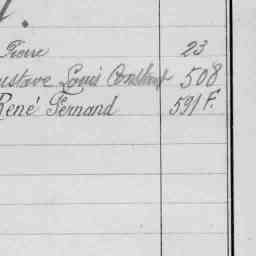 Pierre 23
ustave Louis Constant 508
René Fernand 591 F.